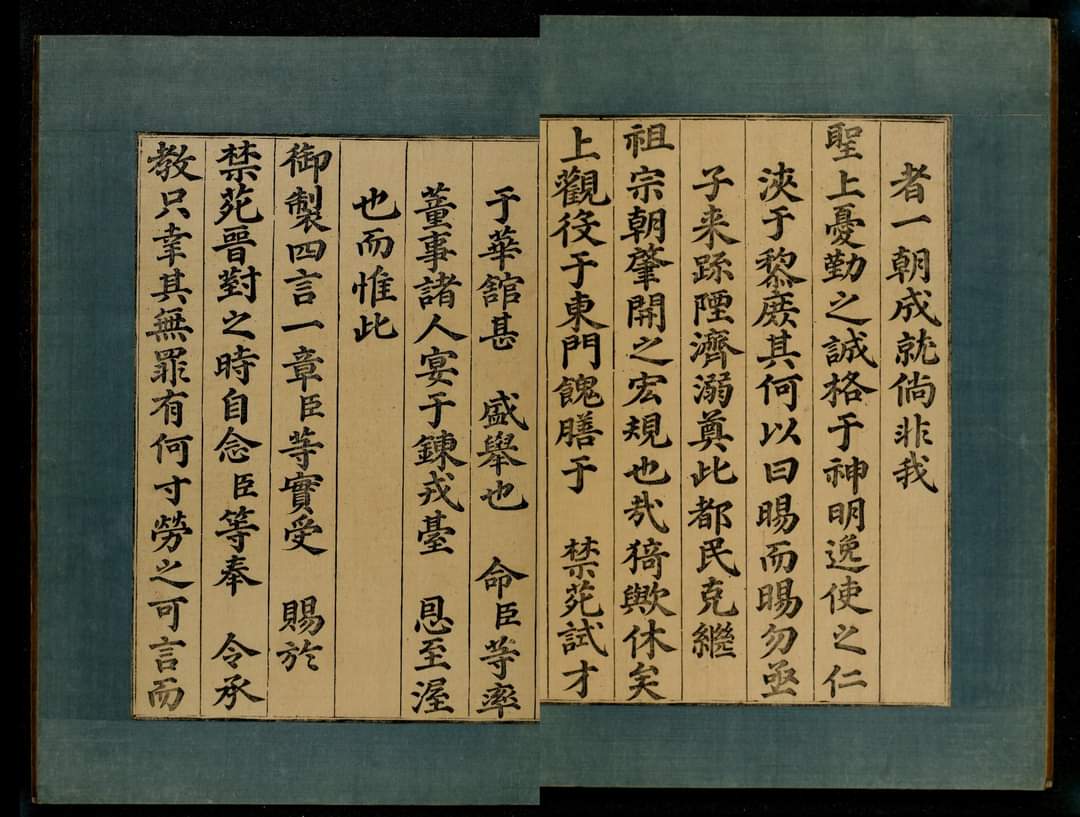 者一朝成就倘非我
聖上憂勤之誠格于神明逸使之仁
浹于黎庶其何以曰暘而暘勿亟
子来踈陻濟溺奠此都民克繼
祖宗朝肇開之宏規也㢤猗歟休矣
上觀役于東門餽膳于 禁苑試才
于華舘甚 盛舉也 命臣等率
董事諸人宴于鍊戎臺 恩至渥
也而惟此
御製四言一章臣等實受 賜於
禁苑晉對之時自念臣等奉 令承
教只幸其無罪有何寸勞之可言而